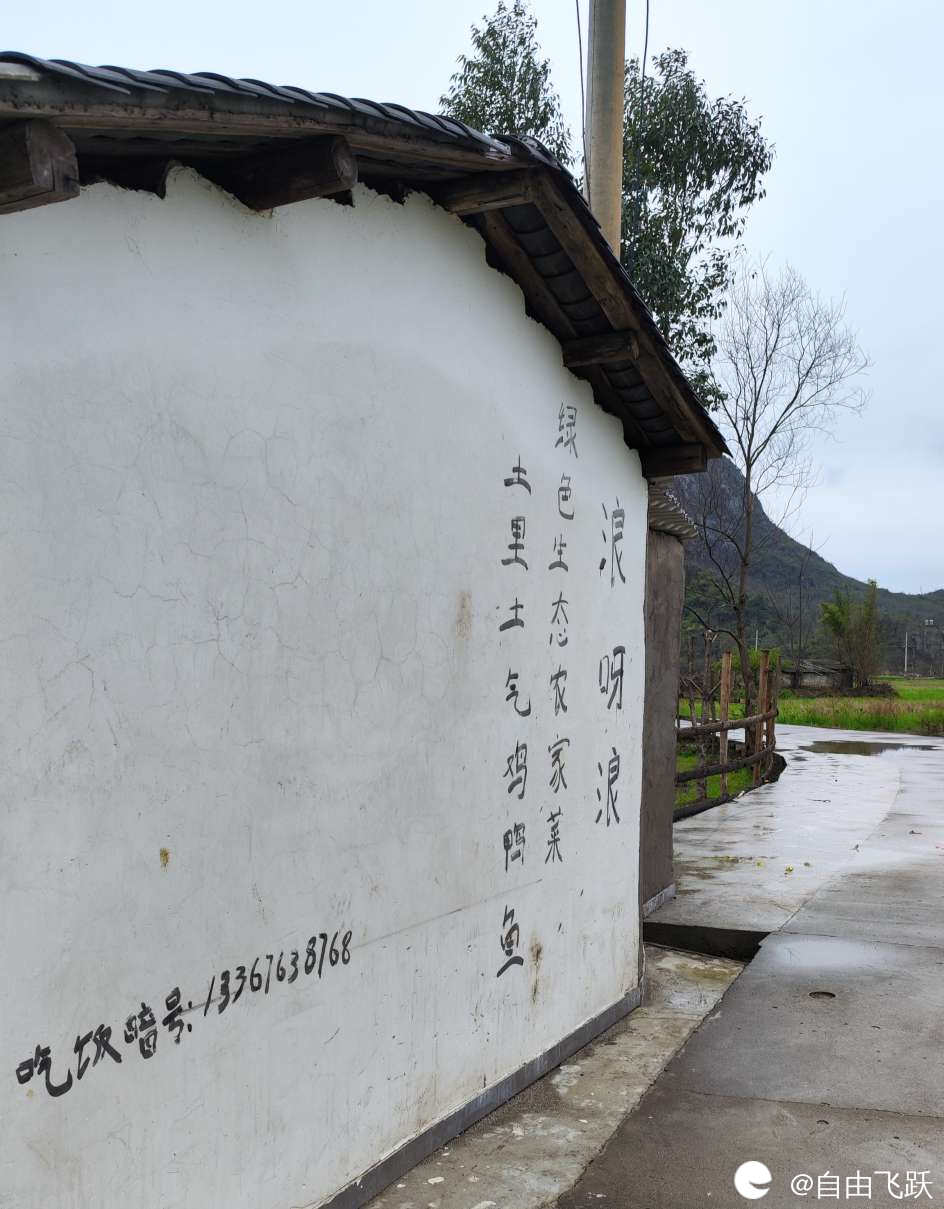 浪呀浪
绿色生态农家菜
土里土气鸡鸭鱼
吃饭暗号:13367638768
@自由飞跃